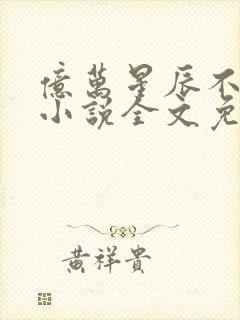 億萬星辰不
小說全文免
黃祥貴